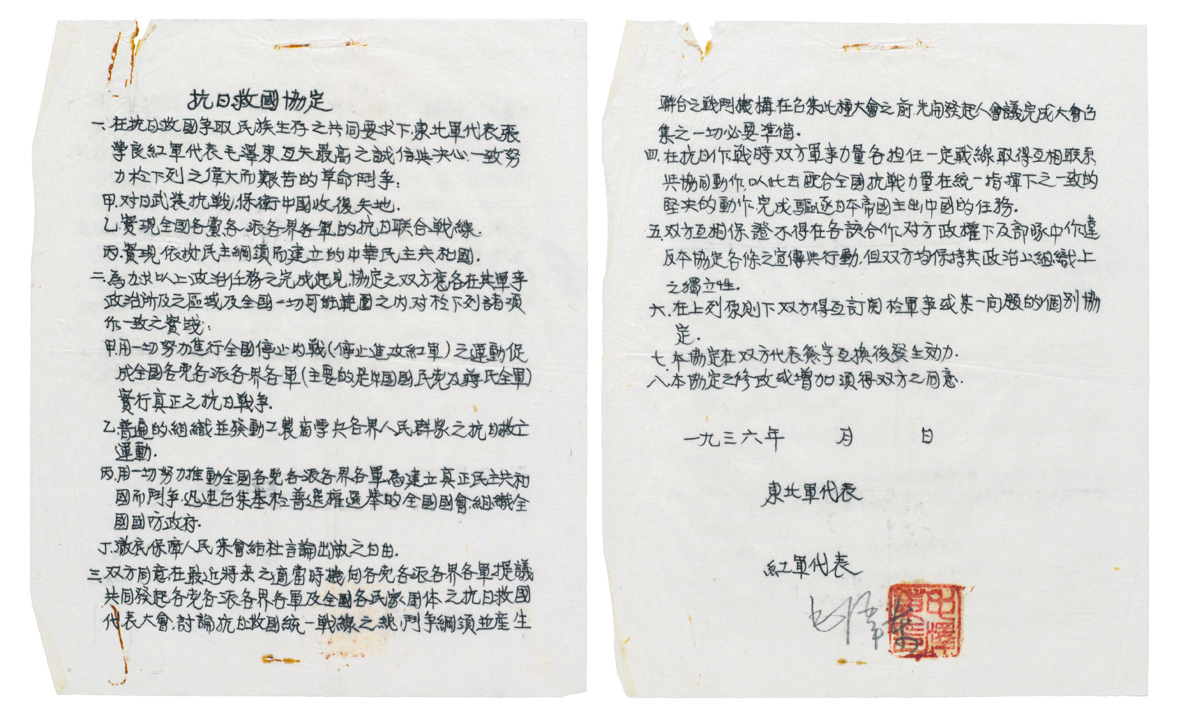 抗日救國協定
一.在抗日救國爭取民族生存之共同要求下,東北軍代表張
學良紅軍代表毛澤東互矢最高之誠信與決心,一致努
力於下列之偉大而艱苦的革命鬥爭:
甲.对日武装抗戰,保衛中國收復失地.
乙.實現全國各黨各派各界各軍的抗日联合戰線.
丙.實現依於民主綱領而建立的中華民主共和國.
二.為力求以上政治任務之完成起見,協定之双方應各在其軍事
政治所及之區域及全國一切可能範圍之内对於下列諸項
作一致之實踐:
甲.用一切努力進行全國停止内戰(停止進攻紅軍)之運動促
成全國各党各派各界各軍(主要的是中國國民党及蔣氏全軍)
實行真正之抗日戰争.
乙.普遍的組織並發動工農商學兵各界人民群眾之抗日救亡
運動.
丙.用一切努力推動全國各党各派各界各軍為建立真正民主共和
國而鬥爭.迅速召集基於普選權選举的全國國會,組織全
國國防政府.
丁.澈底保障人民集會結社言論出版之自由.
三.双方同意在最近將来之適當時機向各党各派各界各軍提議
共同發起各党各派各界各軍及全國各民眾团体之抗日救國
代表大會,討論抗日救國統一戰線之 鬥争綱領並產生
聯合之戰鬥機構在召集此種大會之前先開發起人會議完成大會召
集之一切必要準備.
四.在抗日作戰時双方軍事力量各担任一定戰線取得互相联系
共協同動作,以此去配合全國抗戰力量在統一指揮下之一致的
堅决的動作,完成驅逐日本帝國主義出中國的任務.
五.双方互相保證不得在各該合作对方政權下及部隊中作違
反本協定各條之宣傳與行動,但双方均保持其政治上組織上
之獨立性.
六.在上列原則下双方得互訂関於軍事或某一問題的個別協
定.
七.本協定在双方代表簽字互換後發生効力.
八.本協定之修改或增加須得双方之同意.
一九三六年 月 日
東北軍代表
紅軍代表
毛澤東